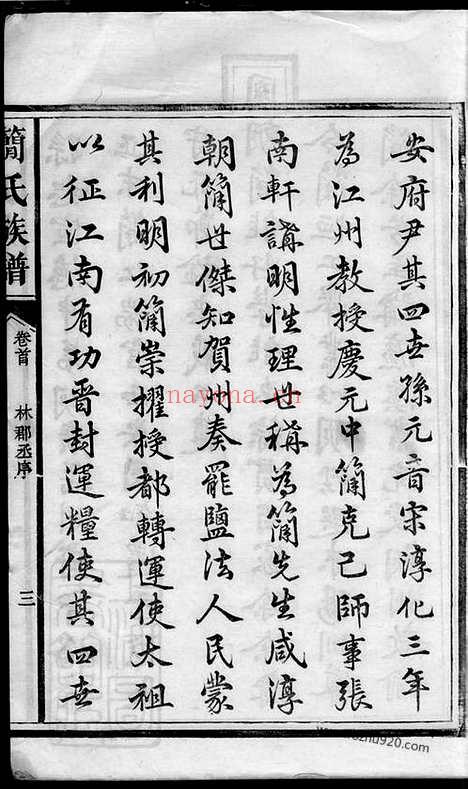 安府尹其四世孫元音宋淳化三年
為江州教授慶元中簡克己師事張
南軒講明性理世稱為簡先生咸淳
朝簡世傑知賀州奏罷鹽法人民蒙
其利明初簡崇擢授都轉運使太祖
以征江南有功晋封運糧使其四世
簡氏族譜
卷首
林郡丞序
三
nayona.cn
zhu920.com